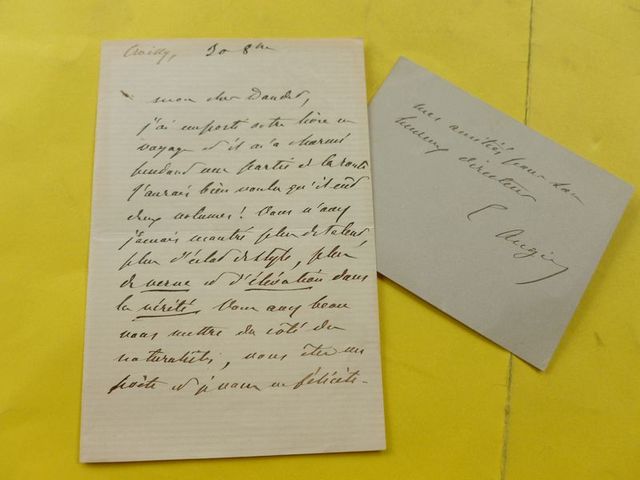 Croissy, 30 8bre
mon cher Daudet,
j'ai emporté votre livre en
voyage et il m'a charmé
pendant une partie de la route
J'aurais bien voulu qu'il eut
deux volumes! Vous n'avez
jamais montré plus de talent
plus d'éclat de style, plus
de verve et d'élévation dans
la vérité. Vous avez beau
vous mettre du côté des
naturalistes, vous êtes un
poète et je vous en félicite.
mes amitiés pour
heureux directeur
E Augier